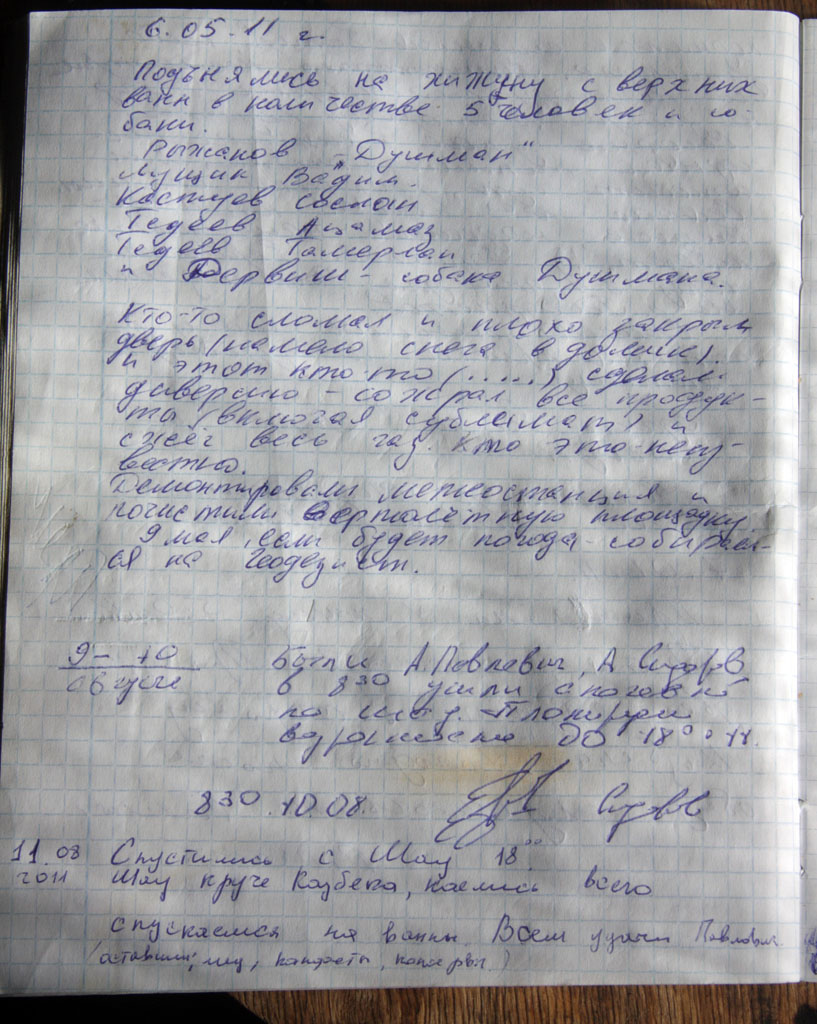 6.05.11 г.
Подънялись на хижуну с верхних
ванн в количестве 5 человек и со-
баки.
Рыжанов „Душман“
Лущик Вадим.
Костуев Сослан
Тедеев Ацамаз
Тедеев Тамерлан
и Дервиш - собака Душмана.
Кто-то сломал и плохо закрыл
дверь (намело снега в домик).
и этот кто то (.....) сделал
диверсию - сожрал все продук-
ты (включая сублимат) и
сжёг весь газ. Кто это - неиз-
вестно.
Демонтировали метеостанция и
почистили вертолётную площадку.
9 мая, если будет погода - собираем-
ся на Геодезист.
9 - 10
августе
Были А. Павлович, А. Сидоров
в 8 30 ушли с
на Планируем
до 18 00
8 30 10.08.
11.08
2011
Спустились с Шау 18 00.
Шау круче Казбека, всего
спускаемся на ванны. Всем удачи Павлович.
(оставили: , конфеты, консервы.)